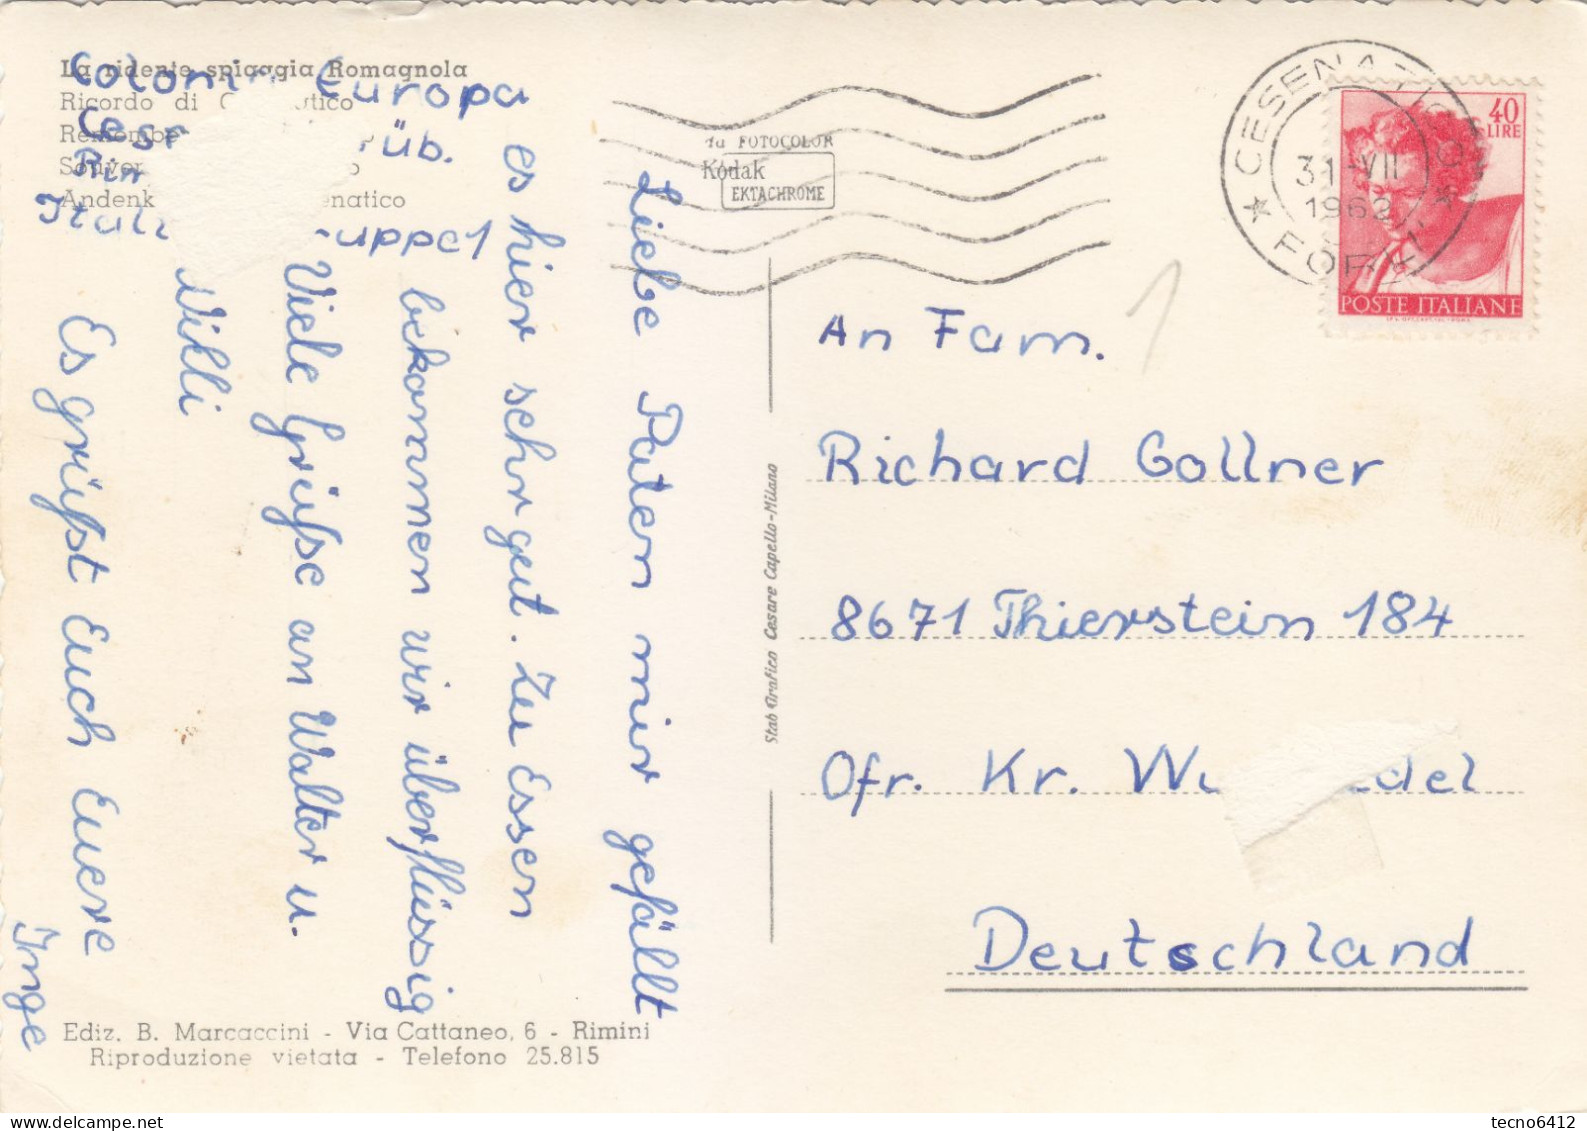 La ridente spiaggia Romagnola
Ricordo di
Andenk
Colonia Europa
üb.
Rim
Ital
uppe 1
Liebe Paten mir gefällt
es hier sehr gut. Zu Essen
bekommen wir überflüssig
Viele Grüße an Walter u.
Willi
Es grüßt Euch Euere
Inge
FOTOCOLOR
Kodak
EKTACHROME
CESENATICO
31-VII
196
FORLI'
40
LIRE
POSTE ITALIANE
1
An Fam.
Richard Gollner
8671 Thierstein 184
Ofr. Kr. Wu edel
Deutschland
Stab Grafico Cesare Capello-Milano
Ediz. B. Marcaccini - Via Cattaneo, 6 - Rimini
Riproduzione vietata - Telefono 25.815
tecno6412